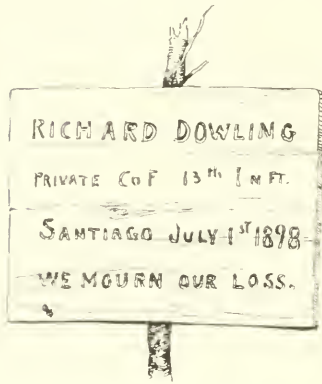 RICHARD DOWLING
PRIVATE Co F 13th INFT.
SANTIAGO JULY 1ST 1898
WE MOURN OUR LOSS.